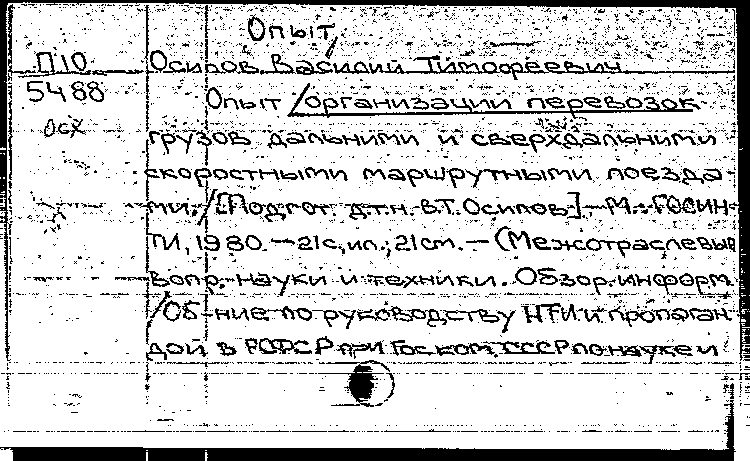 Опыт
П10 Осипов Василий Тимофеевич
5488 Опыт /организации перевозок
осх грузов дальними и сверхдальними
скоростными маршрутными поезда-
ми./[Подгот. д.т.н. В.Т. Осипов].-М.: ГОСИН-
ТИ, 1980.-21с, ил.; 21см.-(Межотраслевые
вопр. науки и техники. Обзор. информ
/Об-ние по руководству НТИ и пропаган
дой в РСФСР при Госком. СССР по науке и